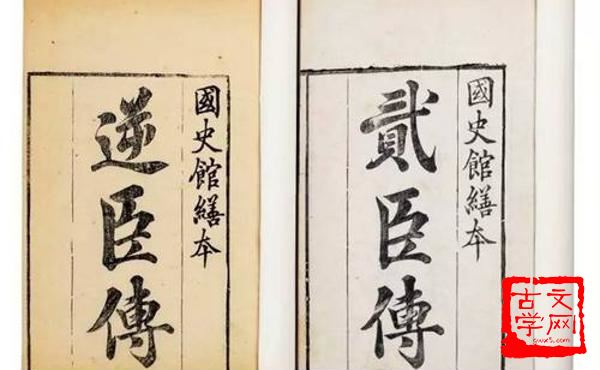 國史館繕本
貳臣傳
國史館繕本
逆臣傳
古文学网
gwx5.com